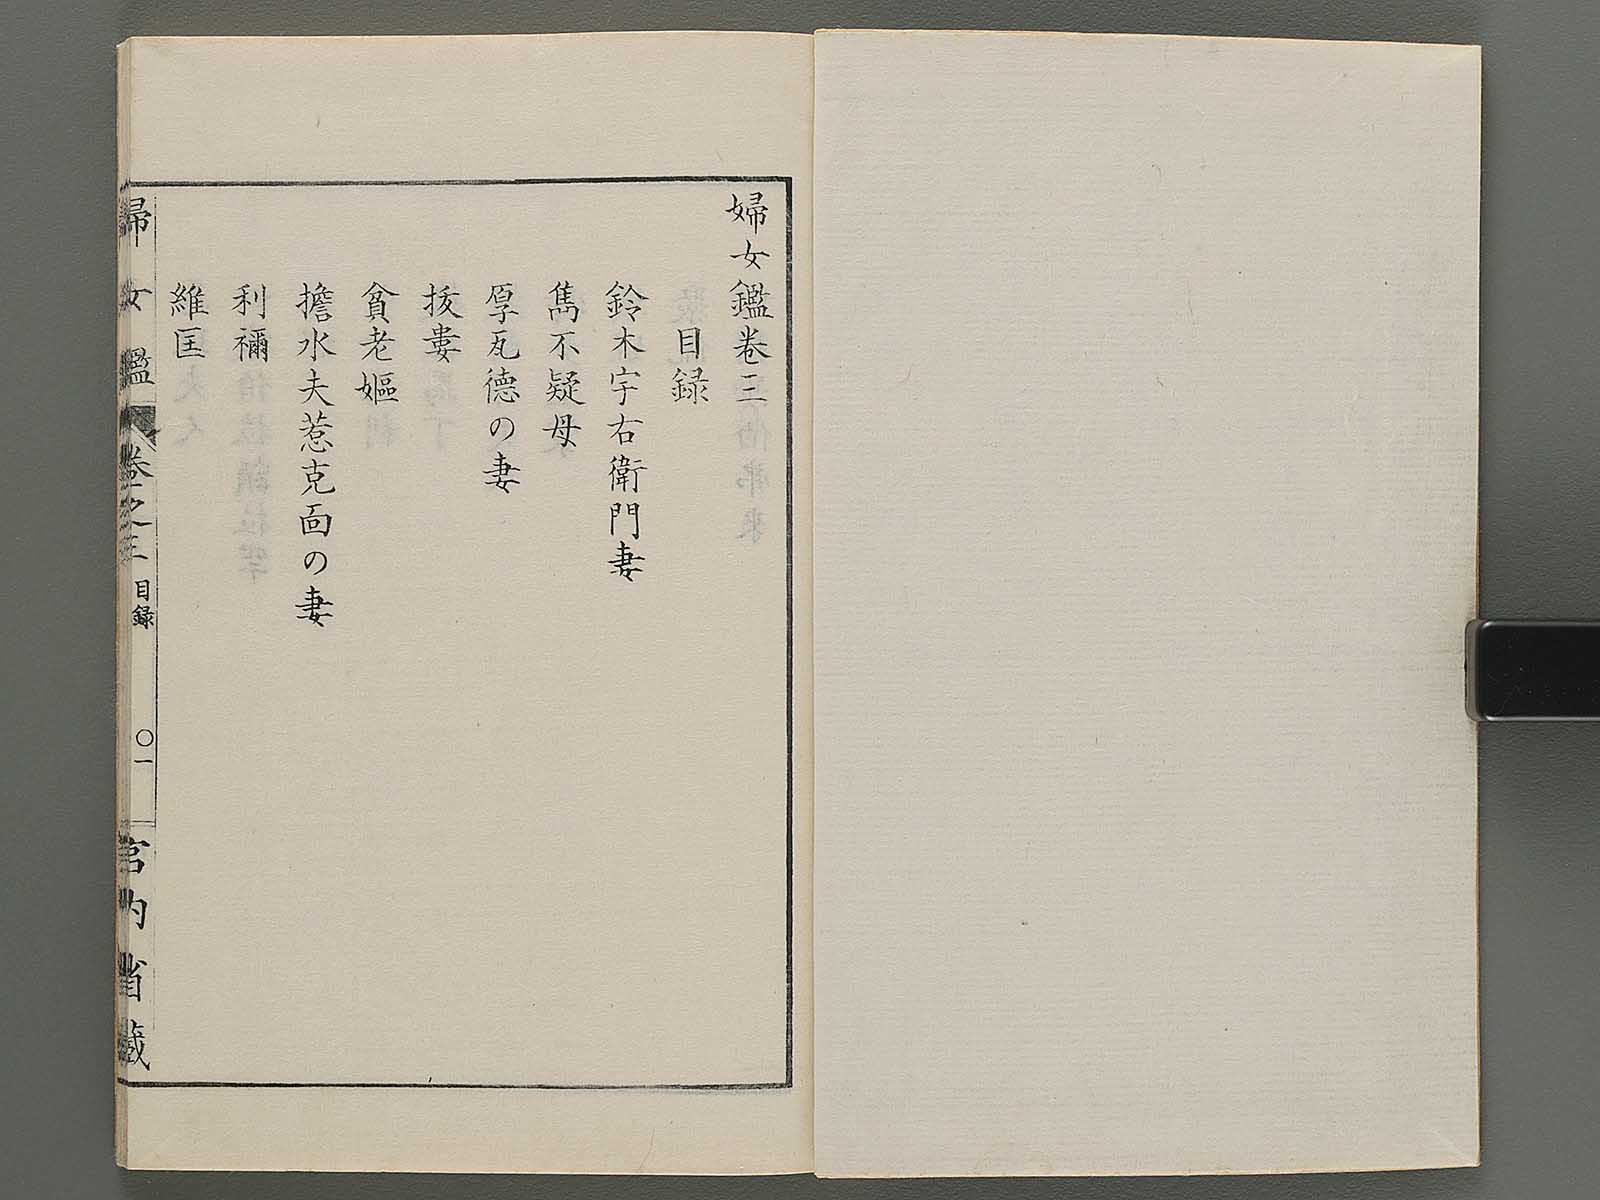 婦女鑑卷三
目録
鈴木宇右衛門妻
雋不疑母
厚瓦德の妻
拔婁
貧老嫗
擔水夫惹克面の妻
利禰
維匡
婦女鑑 卷之三 目録 〇一 宮内省藏